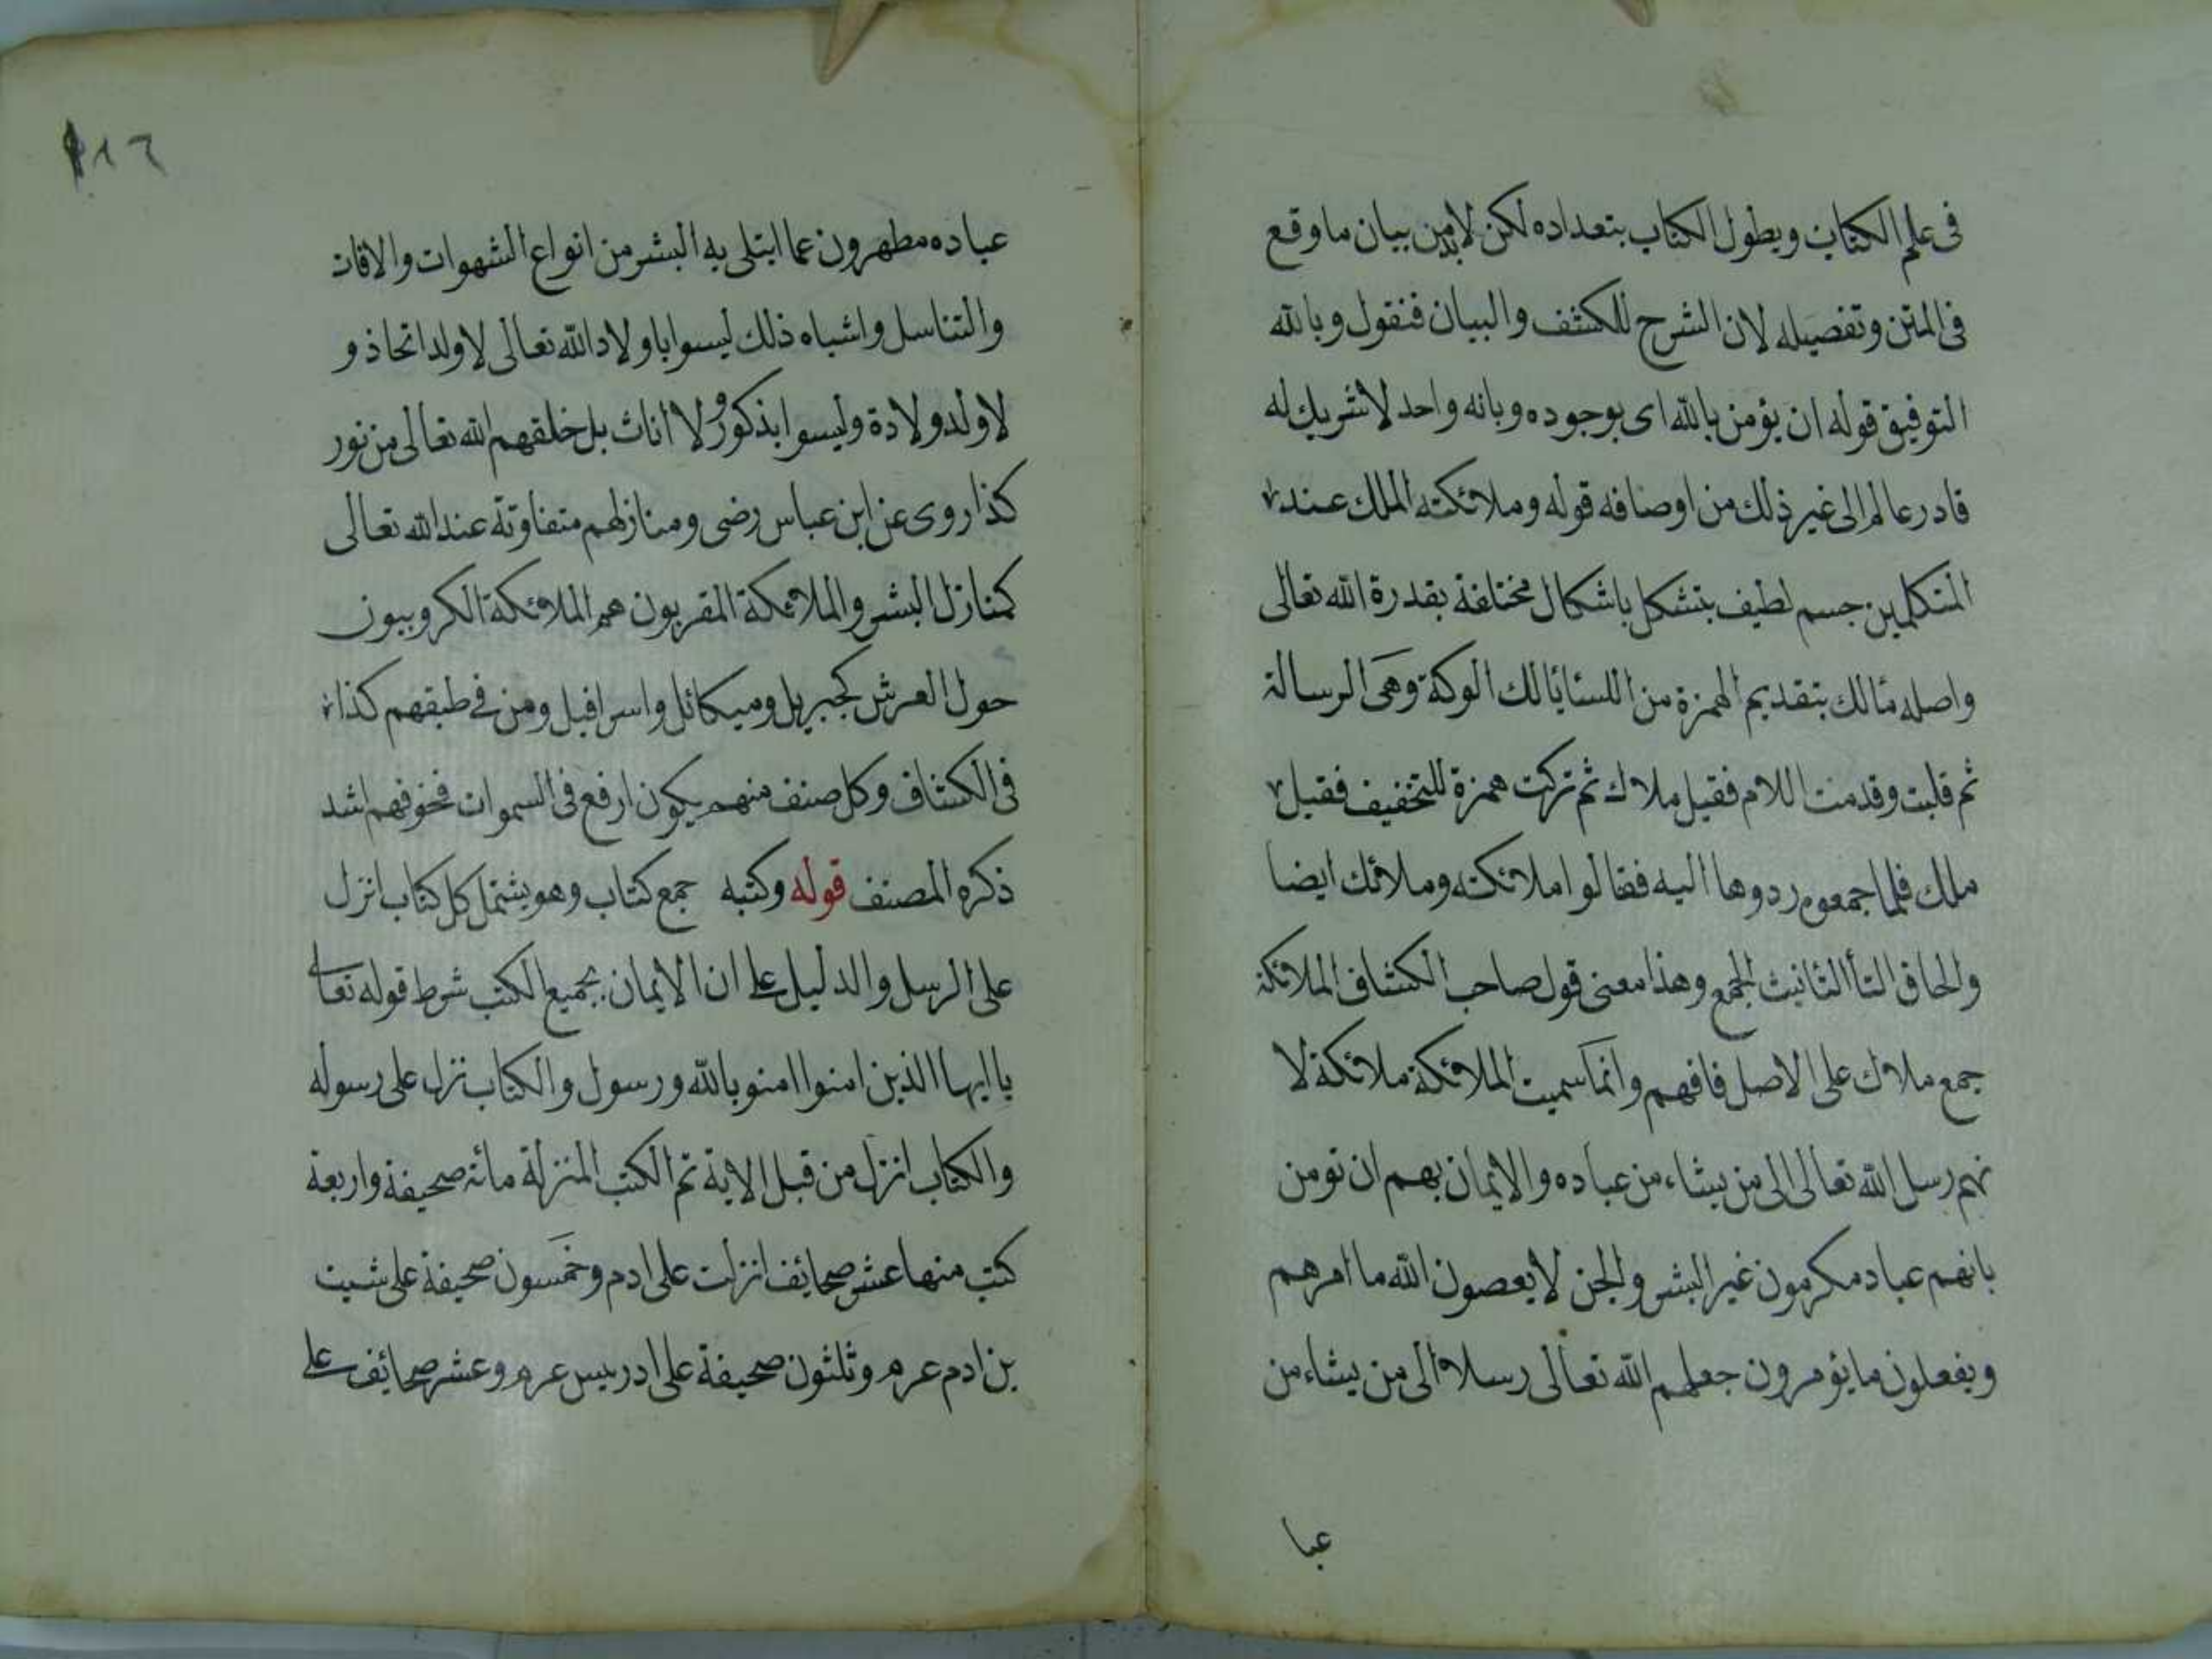 فى علم الكتاب ويطول الكتاب بتعداده لكن لابد من بيان ما وقع
فى المتن وتفصيله لان الشرح للكشف والبيان فنقول وبالله
التوفيق قوله ان يؤمن بالله اى بوجوده وبانه واحد لا شريك له
قادر عالم الى غير ذلك من اوصافه قوله وملائكته الملك عند
المتكلمين جسم لطيف يتشكل باشكال مختلفة بقدرة الله تعالى
واصله مالك بتقديم الهمزة من الوكة وهى الرسالة
ثم قلبت وقدمت اللام فقيل ملاك ثم تركت همزة للتخفيف فقيل
ملك فلما جمعوه ردوها اليه فقالوا ملائكته وملائك ايضا
والحاق التأ التانيث الجمع وهذا معنى قول صاحب الكشاف الملائكة
جمع ملاك على الاصل فافهم وانما سميت الملائكة ملائكة لا
نهم رسل الله تعالى الى من يشاء من عباده والايمان بهم ان تومن
بانهم عباد مكرمون غير البشر والجن لا يعصون الله ما امرهم
ويفعلون ما يؤمرون جعلهم الله تعالى رسلا الى من يشاء من
عبا
١١٦
عباده مطهرون عما ابتلى به البشر من انواع الشهوات والافات
والتناسل واشباه ذلك ليسوا باولاد الله تعالى لا ولد اتخاذ و
لا ولد ولادة وليسوا بذكور ولا اناث بل خلقهم الله تعالى من نور
كذا روى عن ابن عباس رضى ومنازلهم متفاوتة عند الله تعالى
كمنازل البشر والملائكة المقربون هم الملائكة الكروبيون
حول العرش كجبريل وميكائل واسرافيل ومن فى طبقهم كذا
فى الكشاف وكل صنف منهم يكون ارفع فى السموات فخوفهم اشد
ذكره المصنف قوله وكتبه جمع كتاب وهو يشتمل كل كتاب انزل
على الرسل والدليل على ان الايمان بجميع الكتب شرط قوله تعالى
يا ايها الذين امنوا امنو بالله ورسول والكتاب نزل على رسوله
والكتاب انزل من قبل الاية ثم الكتب المنزلة مائة صحيفة واربعة
كتب منها عشر صحائف انزلت على ادم وخمسون صحيفة على شيت
بن ادم عرم وثلثون صحيفة على ادريس عرم وعشر صحائف على